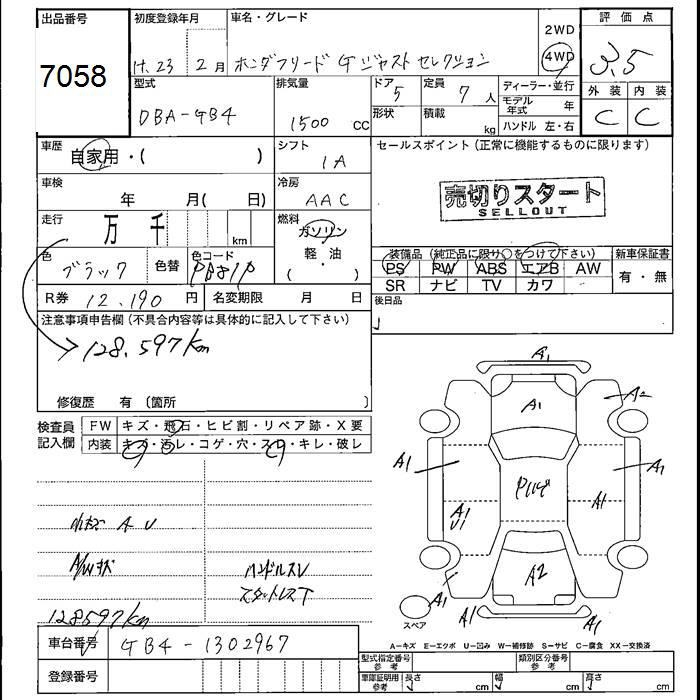 出品番号 初度登録年月 車名・グレード 2WD 評価点
7058 H.23 2月 ホンダフリード G ジャストセレクション 4WD 3.5
型式 排気量 ドア 定員 ディーラー・並行 外装 内装
DBA-GB4 1500cc 5 7人 モデル年式 年 C C
形状 積載 kg ハンドル 左・右
車歴 自家用・( ) シフト 1A セールスポイント (正常に機能するものに限ります)
車検 年 月( 日) 冷房 AAC 売切りスタート
SELLOUT
走行 万 千 km 燃料 ガソリン
軽・油
( ・ )
色 ブラック 色替 色コード
装備品 (純正品に限り○をつけて下さい) 新車保証書
PS PW ABS エアB AW 有・無
SR ナビ TV カワ
R券 12.190円 名変期限 月 日 後日品
注意事項申告欄 (不具合内容等は具体的に記入して下さい)
128.597km
修復歴 有 (箇所 )
検査員記入欄 FW キズ・飛石・ヒビ割・リペア跡・X要
内装 キズ・汚レ・コゲ・穴・スレ・キレ・破レ
A1
A1 A2
A1 A1 A1
A1
U1
A2
A1 A1 A1
小キズ A U
ハンドルスレ
スタットレス下
128597km
スペア
A-キズ E-エクボ U-凹み W-補修跡 S-サビ C-腐食 XX-交換済
車台番号 GB4-1302967
登録番号
型式指定番号 参考 類別区分番号 参考
車庫証明用 参考 長さ cm 幅 cm 高さ cm